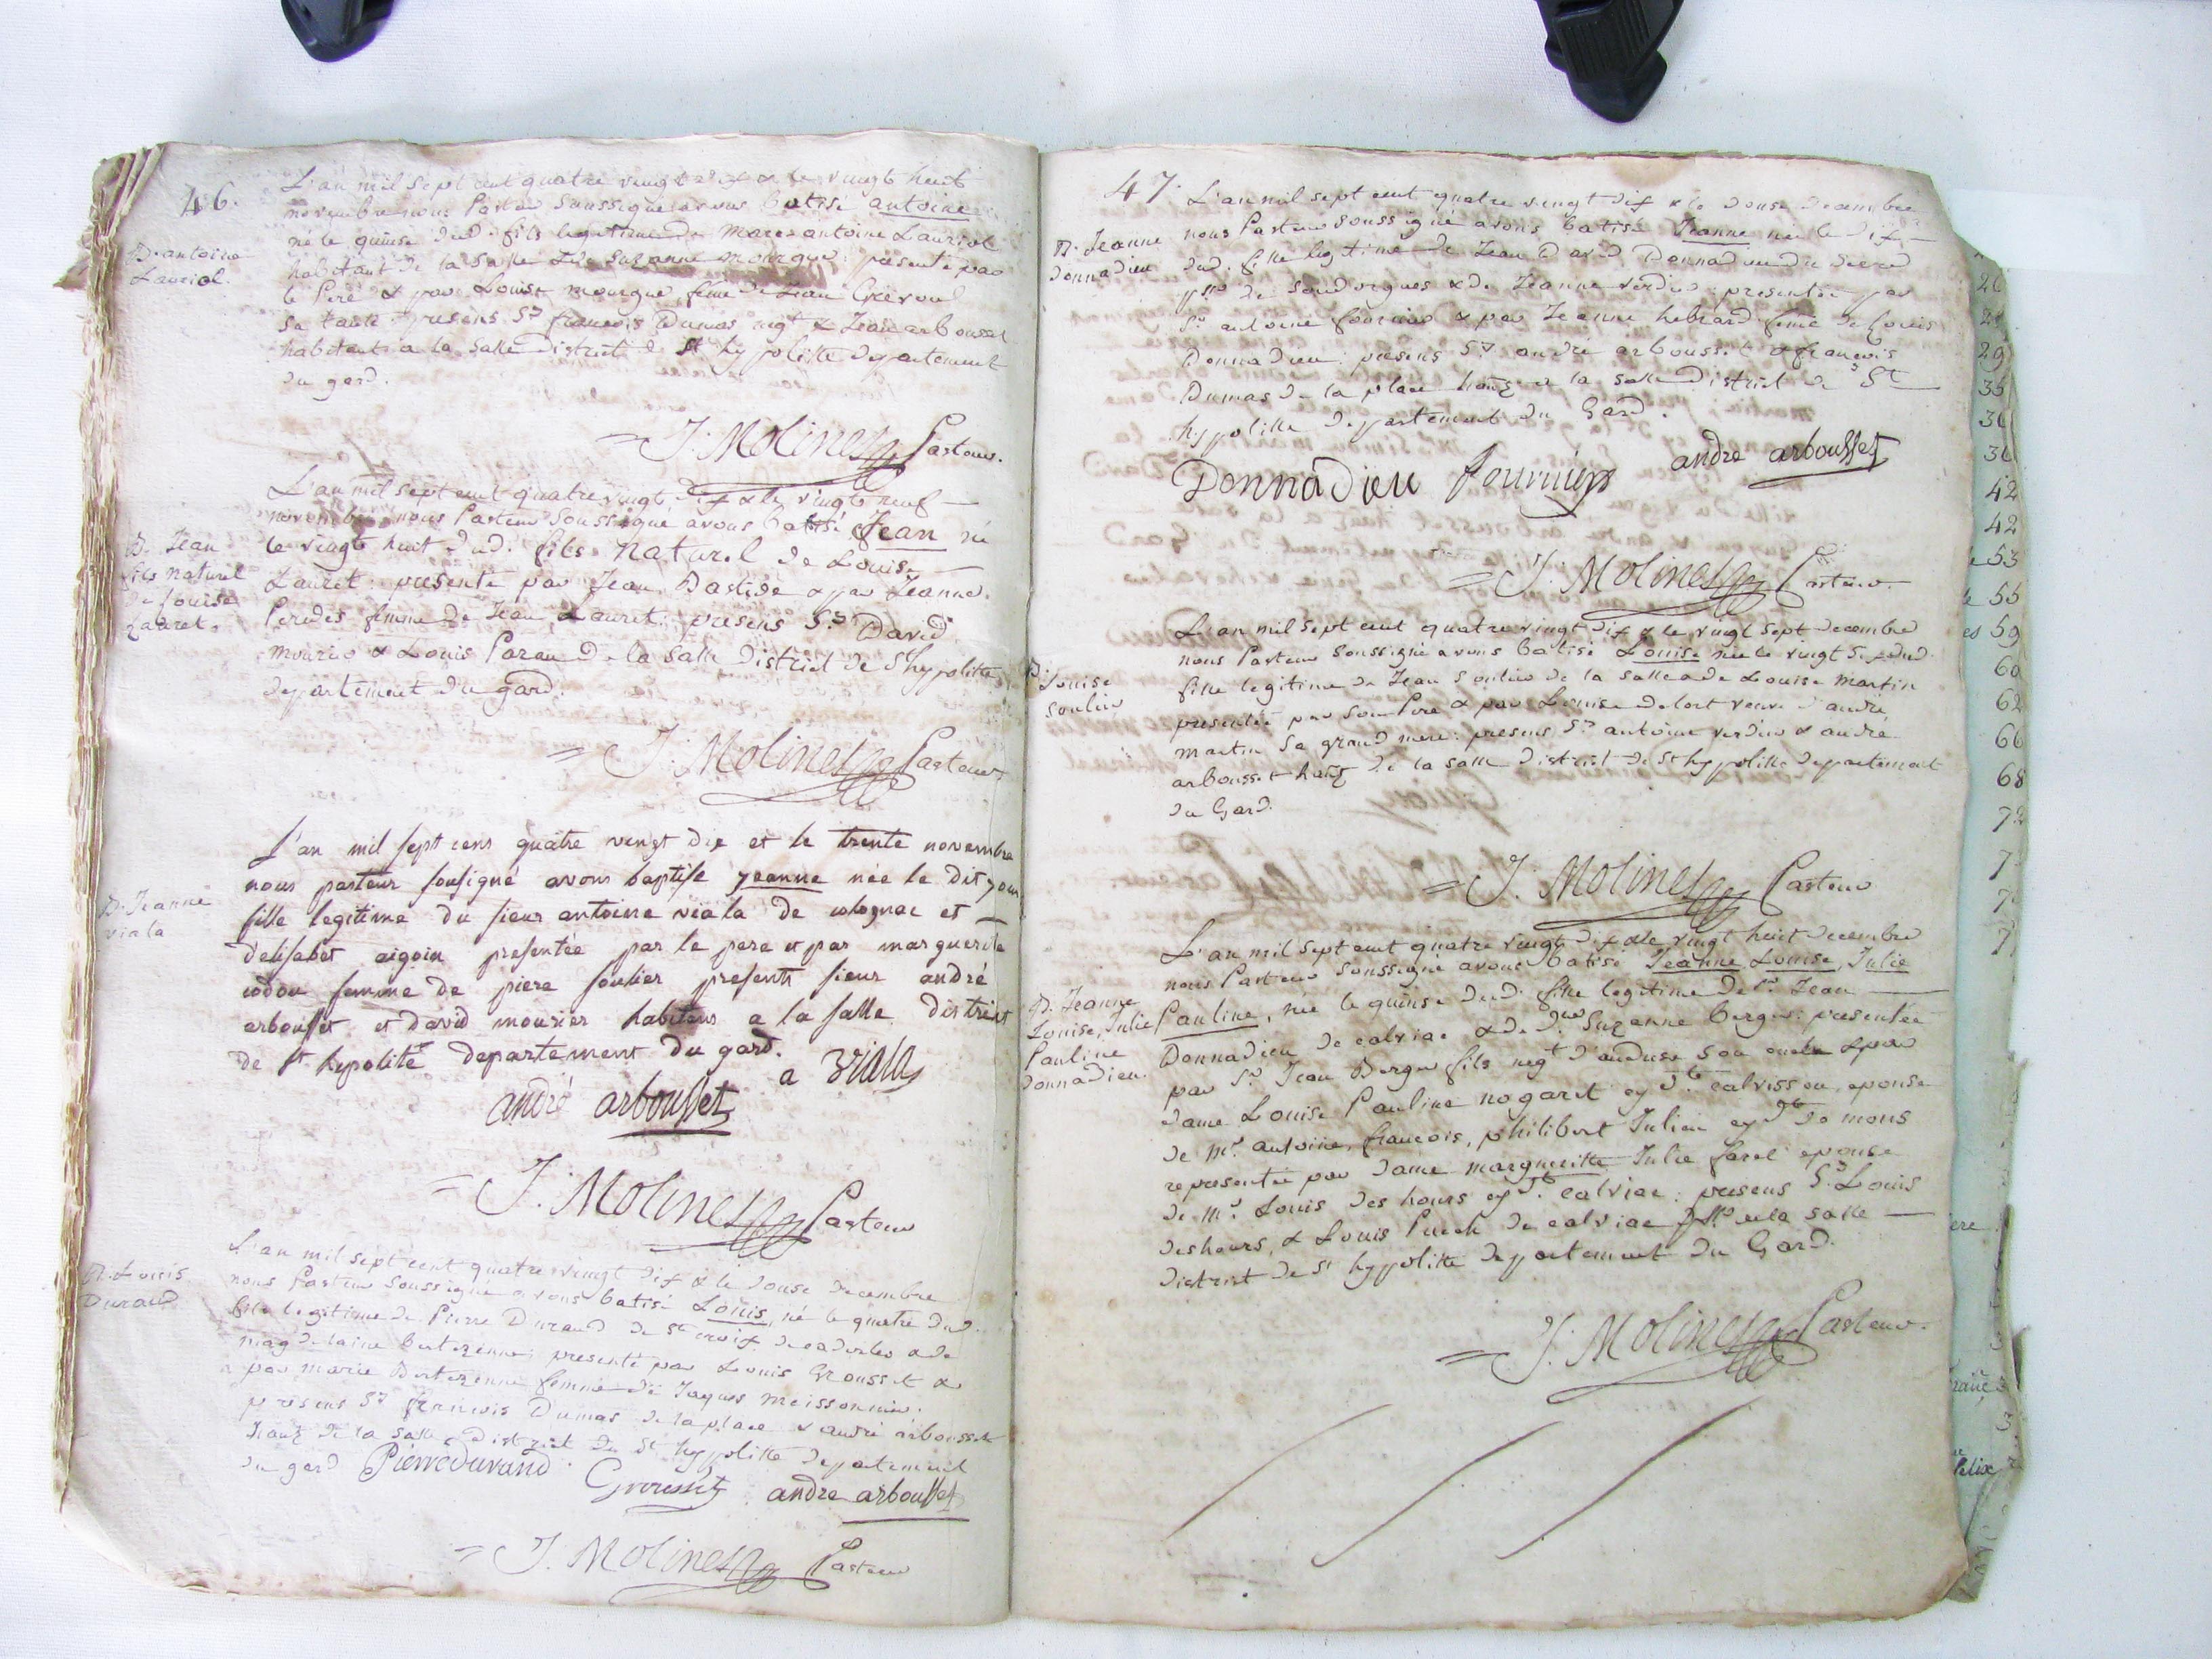 46.
L'an mil sept cent quatre vingt dix & le vingt huit
novembre nous Pasteur Soussigné avons batisé antoine
né le quinse dud. fils legitime de Marc antoine Lauriol
habitant de la Salle & de Suzanne mourgue: presenté par
le Pere & par Louise mourgue feme de Jean
Sa tante: presens Srs. francois Dumas negt. & Jean arbousset
habitants a la Salle District de St. hypolitte departement
du gard.
B. antoine
Lauriol.
= J: Molines Pasteur.
L'an mil sept cent quatre vingt dix & le vingt neuf
novembre nous Pasteur Soussigné avons batisé Jean né
le vingt huit dud. fils Naturel de Louise
Lauret: presenté par Jean Bastide & par Jeanne
Peredes femme de Jean Lauret: presens Srs. David
mourier & Louis Paran de la Salle District de St hypolitte
departement du gard.
B. Jean
fils naturel
de Louise
Lauret.
= J: Molines Pasteur
L'an mil sept cens quatre vingt dix et le trente novembre
nous pasteur sousigné avons baptisé jeanne née le dit jour
fille legitime du sieur antoine viala de colognac et
d'elisabet aigoin presentée par le pere et par marguerite
codou femme de piere soulier presents sieur andré
arbousset et david mourier habitens a la salle district
de st hypolite departement du gard.
B. Jeanne
viala
a viala
andré arbousset
= J: Molines Pasteur
L'an mil sept cent quatre vingt dix & le douse decembre
nous Pasteur Soussigné avons batisé Louis, né le quatre dud.
fils legitime de Pierre Durand de Ste croix de caderles & de
magdelaine Bertezenne: presenté par Louis Grousset &
par marie Bertezenne femme de Jaques meissonnier.
presens Srs. francois Dumas de la place & andré arbousset
habts. de la Salle, District de St hyppolitte departement
du gard
B. Louis
Durand
Pierre durand Grousset andre arbousset
= J: Molines Pasteur
47.
L'an mil sept cent quatre vingt dix & le douse decembre
nous Pasteur Soussigné avons batisé Jeanne née le dix
dud. fille legitime de Jean David Donnadieu du
psse. de Soudorgues & de Jeanne verdier: presentée par
Sr. antoine fournier & par Jeanne hebrard feme de Louis
Donnadieu: presens Srs. andré arbousset & francois
Dumas de la place habts. a la Salle District de St
hyppolitte departement du Gard.
B. Jeanne
donnadieu
Donnadieu fournier andre arbousset
= J: Molines Pasteur
L'an mil sept cent quatre vingt dix & le vingt sept decembre
nous Pasteur Soussigné avons batisé Louise née le vingt dud.
fille legitime de Jean Soulier de la Salle & de Louise Martin
presentée par Son Pere & par Louise delort veuve d'andré
martin Sa grand mere: presens Srs. antoine verdier & andré
arbousset habts. de la Salle District de St hyppolitte departement
du Gard.
B. Louise
Soulier
= J: Molines Pasteur
L'an mil sept cent quatre vingt dix & le vingt huit decembre
nous Pasteur Soussigné avons batisé Jeanne, Louise, Julie
Pauline, née le quinse dud. fille legitime de Sr. Jean
Donnadieu de calviac & de Suzanne Berger: presentée
par Sr. Jean Berger fils negt. d'anduse Son oncle & par
dame Louise Pauline nogaret eydt. calvisson, epouse
de mr. antoine, francois, philibert Julien eydt. de mons
representée par dame margueritte Julie farel epouse
de mr. Louis des hours eydt. calviac: presens Srs. Louis
deshours, & Louis Puech de calviac psse. de la Salle
District de St hyppolitte departement du Gard.
B. Jeanne
Louise, Julie
Pauline
donnadieu.
= J: Molines Pasteur.
29
35
42
42
53
55
59
60
62
66
68